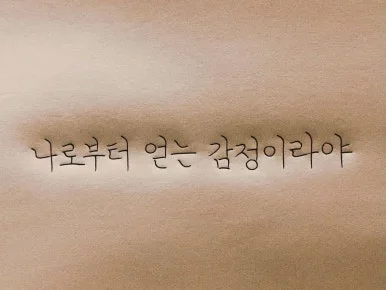 나로부터 얻는 감정이라야